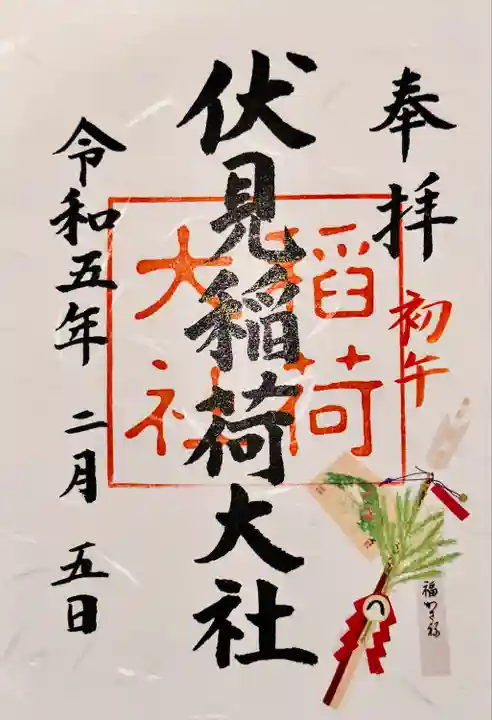 奉拝
初午
伏見稲荷大社
稲荷
大社
令和五年 二月 五日
福かさね